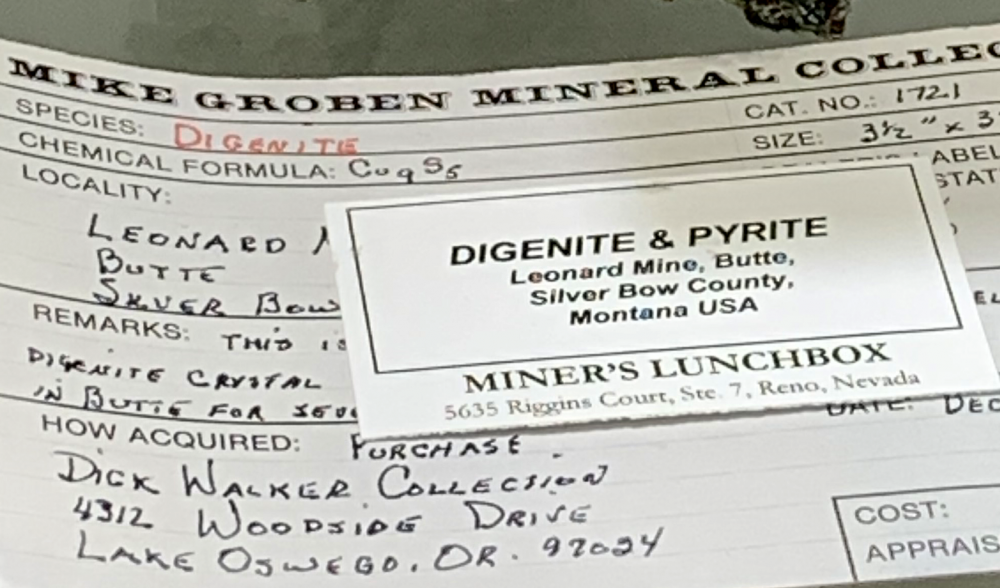 MIKE GROBEN MINERAL COLLEC
SPECIES: DIGENITE
CAT. NO.: 1721
CHEMICAL FORMULA: Cu9S5
SIZE: 3½" x 3
LOCALITY:
ABEL
STAT
LEONARD
BUTTE
SILVER BOW
DIGENITE & PYRITE
Leonard Mine, Butte,
Silver Bow County,
Montana USA
MINER'S LUNCHBOX
5635 Riggins Court, Ste. 7, Reno, Nevada
REMARKS: THIS IS
DIGENITE CRYSTAL
IN BUTTE FOR
DATE: DEC
HOW ACQUIRED: PURCHASE.
DICK WALKER COLLECTION
4312 WOODSIDE DRIVE
LAKE OSWEGO, OR. 97034
COST:
APPRAIS